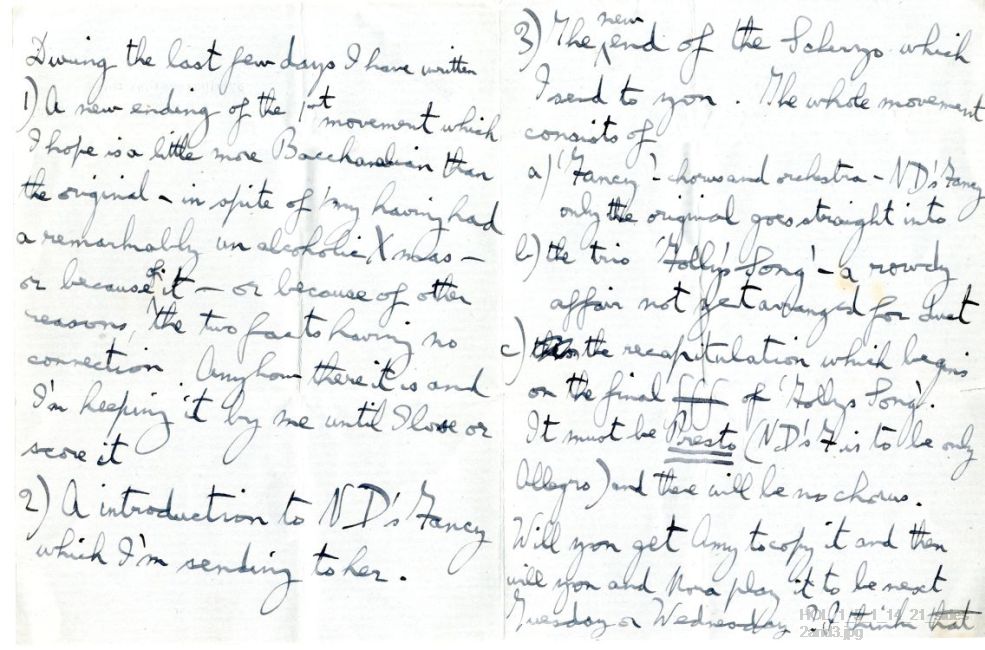 During the last few days I have written
1) A new ending of the 1st movement which
I hope is a little more Bacchanalian than
the original – in spite of my having had
a remarkably un alcoholic Xmas –
or because of it – or because of other
reasons, the two facts having no
connection Anyhow there it is and
I'm keeping it by me until I lose or
score it
2) A introduction to ND's Fancy
which I'm sending to her.
3) The new end of the Scherzo which
I send to you. The whole movement
consists of
a) 'Fancy' – chorus and orchestra – ND's Fancy
only the original goes straight into
b) the trio 'Folly's Song' – a rowdy
affair not yet arranged for duet
c) the recapitulation which begins
on the final fff of 'Folly's Song'.
It must be Presto (ND's F is to be only
Allegro) and there will be no chorus.
Will you get Amy to copy it and then
will you and Nora play it to be next
Tuesday or Wednesday? I think that
HOL_1_7_1_14_21
2and3.jpg